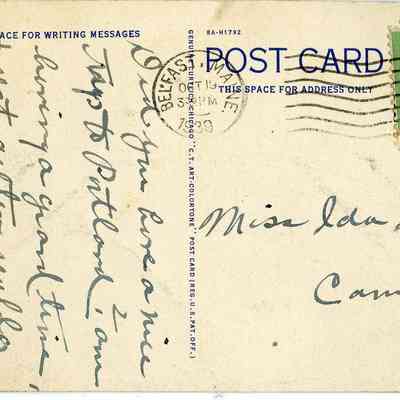 ACE FOR WRITING MESSAGES
8A-H1792
POST CARD
THIS SPACE FOR ADDRESS ONLY
BELFAST, MAINE
OCT 19
3 30 PM
1939
GENUINE CURTEICH-CHICAGO "C.T. ART-COLORTONE" POST CARD (REG. U.S. PAT. OFF.)
Did you have a nice
trip to Portland? am
having a grand time,
Miss Ida
Cam